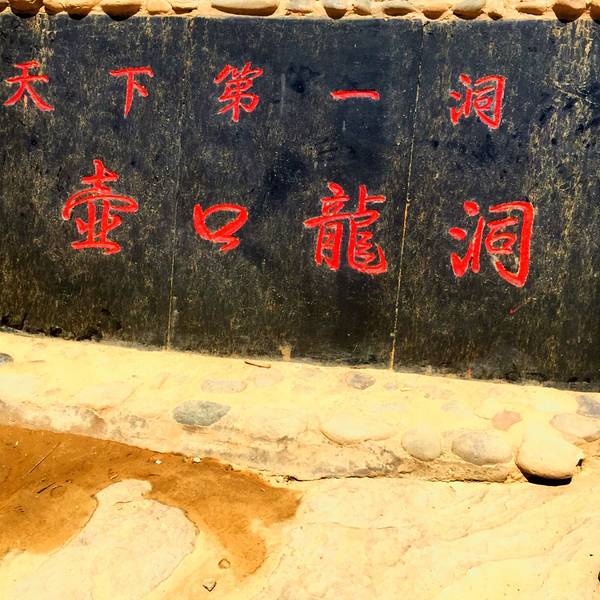 天下第一洞
壺口龍洞